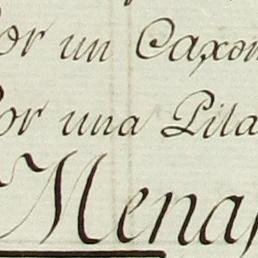 or un Caxon
or una Pila
Mena